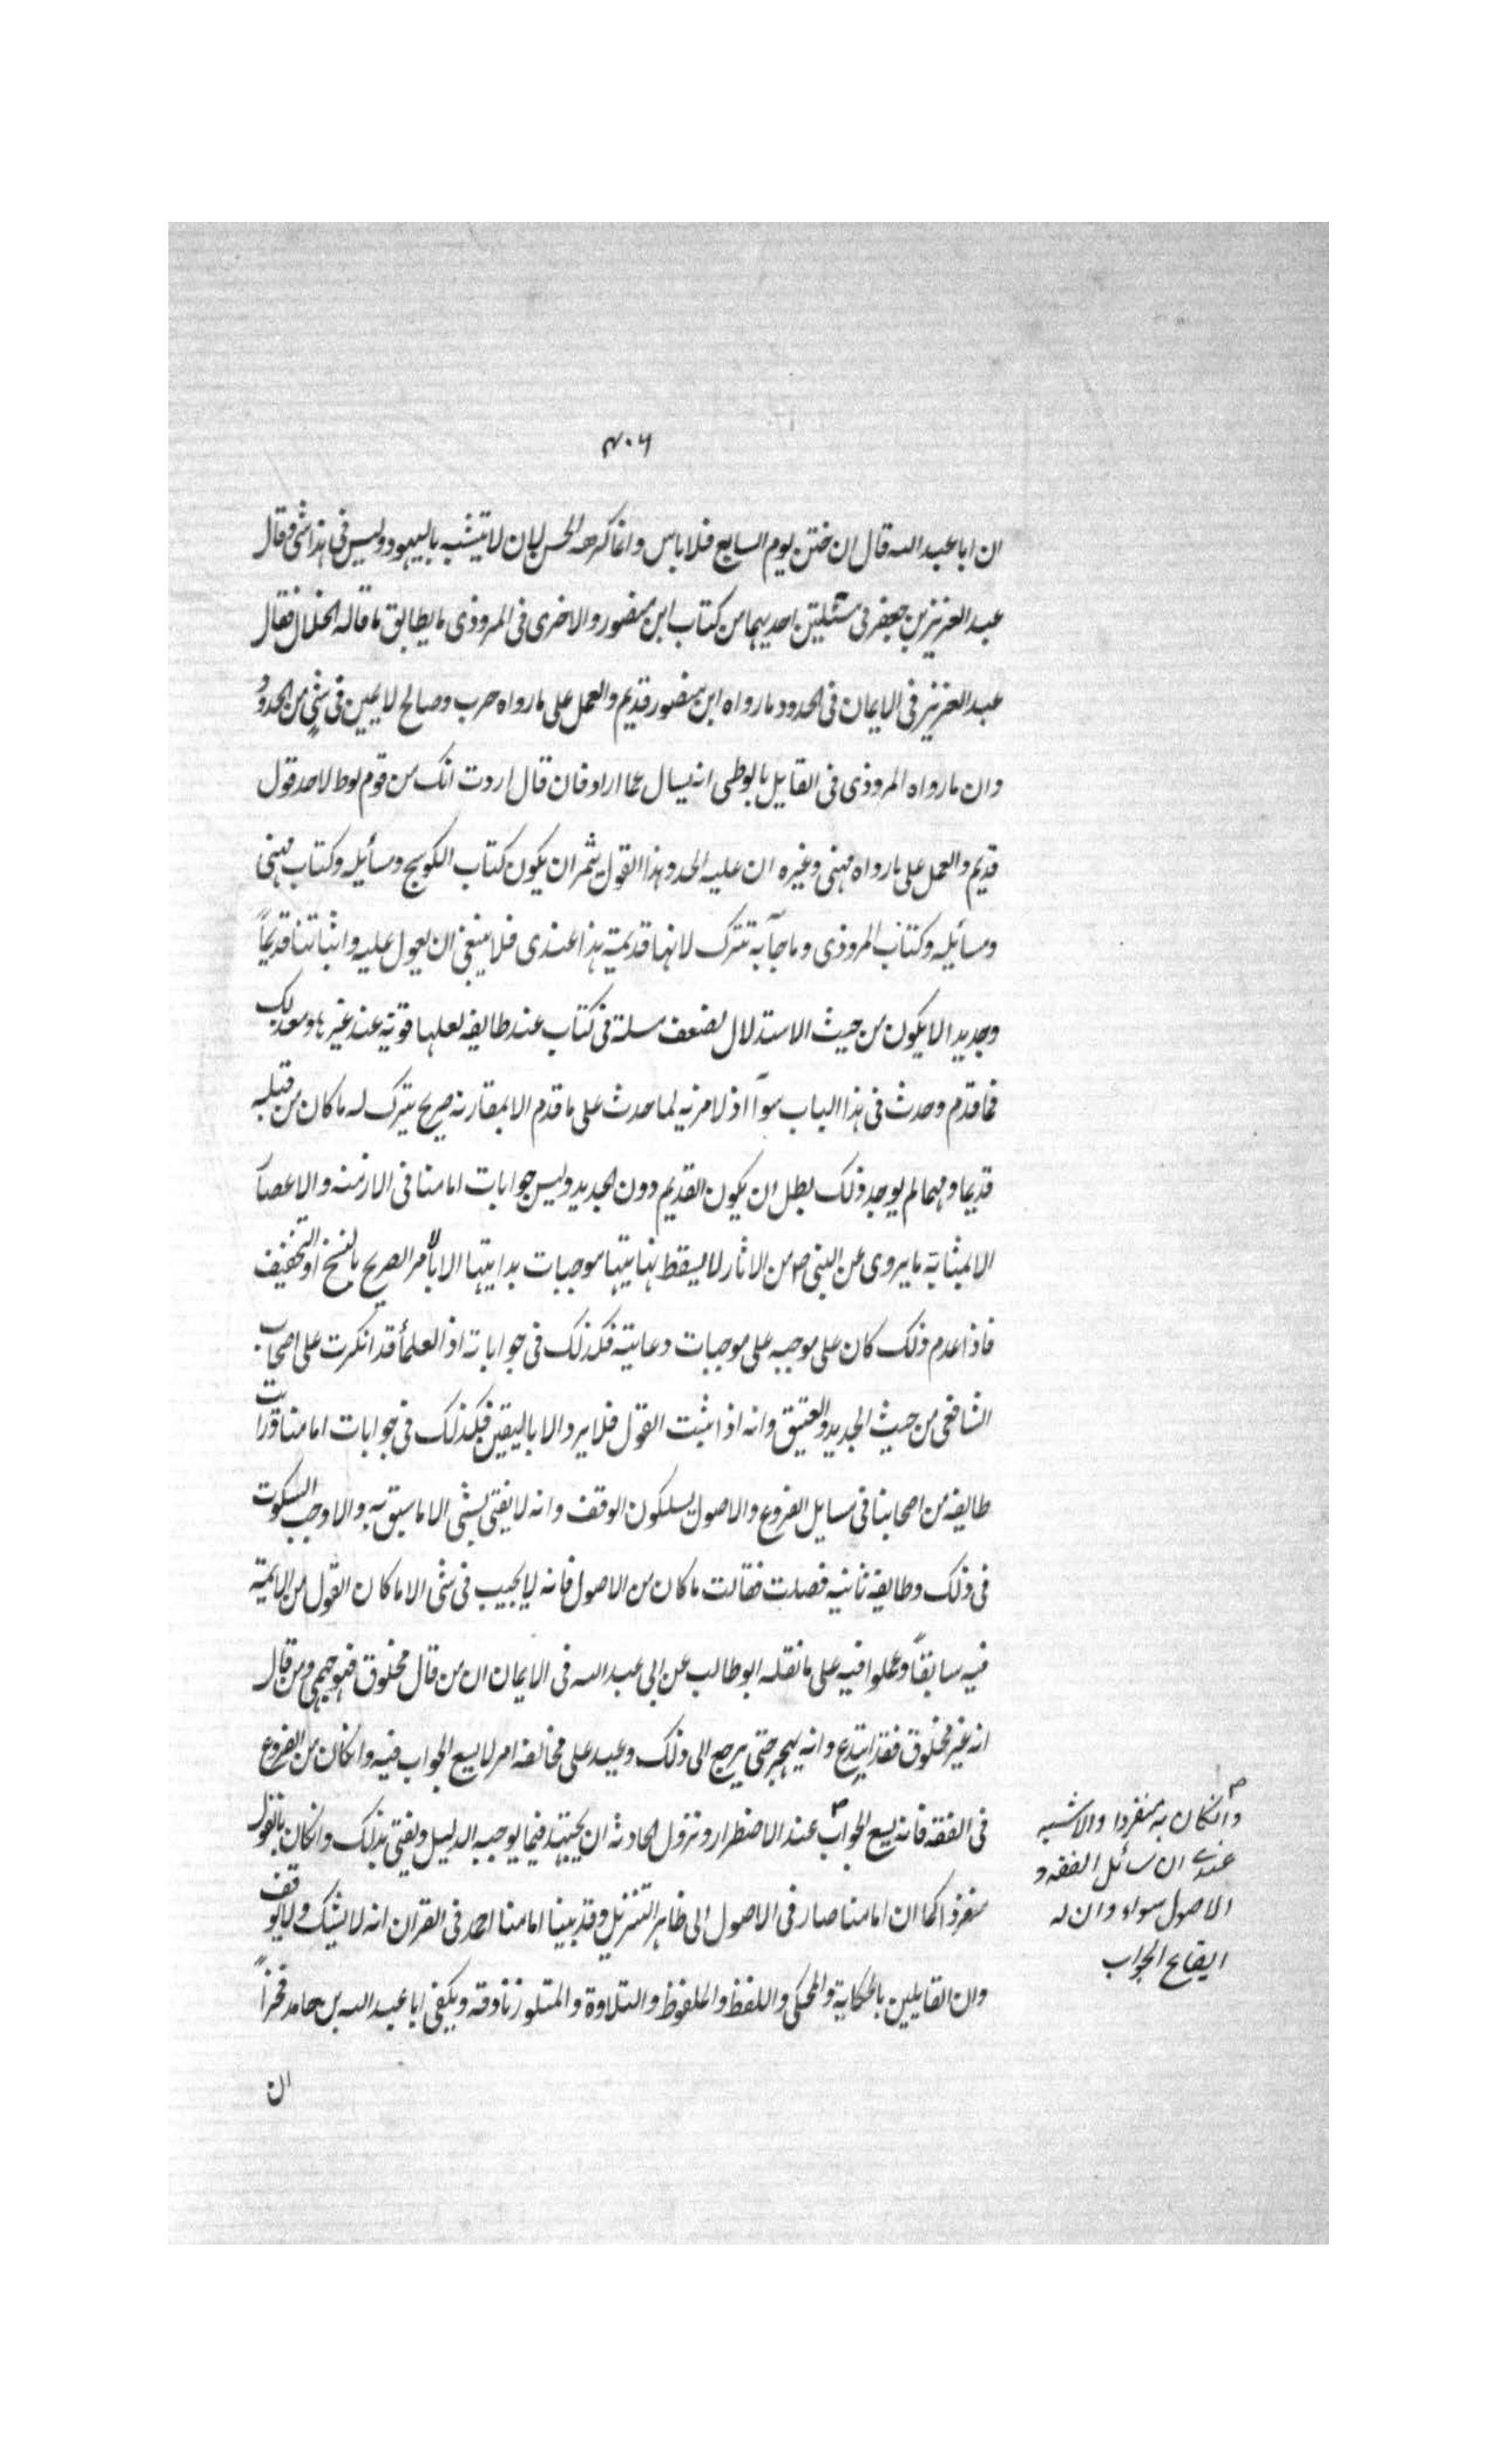 ٤٠٦
ان ابا عبد الله قال ان ختن يوم السابع فلا باس وانما كرهه الحسن ليان لا يتشبه باليهود وليس فى هذا شى وقال
عبد العزيز بن جعفر فى مسئلتين احديهما من كتاب ابن منصور والاخرى فى المروذى ما يطابق ما قاله الخلال فقال
عبد العزيز فى الايمان فى الحدود ما رواه ابن منصور قديم والعمل على ما رواه حرب وصالح لا يمين فى شئ من الحدود
وان ما رواه المروذى فى القايل يا لوطى انه يسال عما اراد فان قال اردت انك من قوم لوط لا حد قول
قديم والعمل على ما رواه مهنى وغيره ان عليه الحد وهذا القول يثمر ان يكون كتاب الكوسج ومسائيله وكتاب مهنى
ومسائيله وكتاب المروذى وما جآ به تترك لانها قديمة هذا عندى فلا ينبغى ان يعول عليه واثباتنا قديماً
وجديدا لا يكون من حيث الاستدلال لضعف مسلة فى كتاب عند طايفه لعلها قوية عند غيرها ومع ذلك
فما قدم وحدث فى هذا الباب سوآ اذ لا مزيه لما حدث على ما قدم الا بمقارنه صريح يترك له ما كان من قبله
قديما ومهما لم يوجد ذلك بطل ان يكون القديم دون الجديد وليس جوابات امامنا فى الازمنه والاعصآ
الا بمثابة ما يروى عن النبى ص من الاثار لا يسقط نهايتها موجبات بدايتها الا بالامر الصريح بالنسخ او التخفيف
فاذا عدم ذلك كان على موجبه على موجبات دعايته فكذلك فى جواباته اذ العلمآ قد انكرت على اصحاب
الشافعى من حيث الجديد والعتيق وانه اذا ثبت القول فلا يرد الا باليقين فكذلك فى جوابات امامنا ورات
طايفه من اصحابنا فى مسايل الفروع والاصول يسلكون الوقف وانه لا يفتى بشى الا ما سبق به والا وجب السكوت
فى ذلك وطايفه ثانيه فصلت فقالت ما كان من الاصول فانه لا يجيب فى شى الا ما كان القول من الايمة
فيه سابقاً وعملوا فيه على ما نقله ابو طالب عن ابى عبد الله فى الايمان ان من قال مخلوق فهو جهمى ومن قال
انه غير مخلوق فقد ابتدع وانه يهجر حتى يرجع الى ذلك وعيد على مخالفه امر لا يسع الجواب فيه وانكان من الفروع
فى الفقه فانه يسع الجواب عند الاضطرار ونزول الحادثه ان يجتهد فيما يوجبه الدليل ويفتى بذلك وانكان بالقول
منفردا كما ان امامنا صار فى الاصول الى ظاهر التنزيل وقد بينا امامنا احمد فى القران انه لا يشك ولا يوقف
وان القايلين بالحكاية والمحكى واللفظ والملفوظ والتلاوة والمتلو زنادقه ويكفى ابا عبد الله بن حامد فخراً
ان
وانكان به منفردا والاشبه
عندى ان مسائل الفقه و
الاصول سواء وان له
ايقاع الجواب